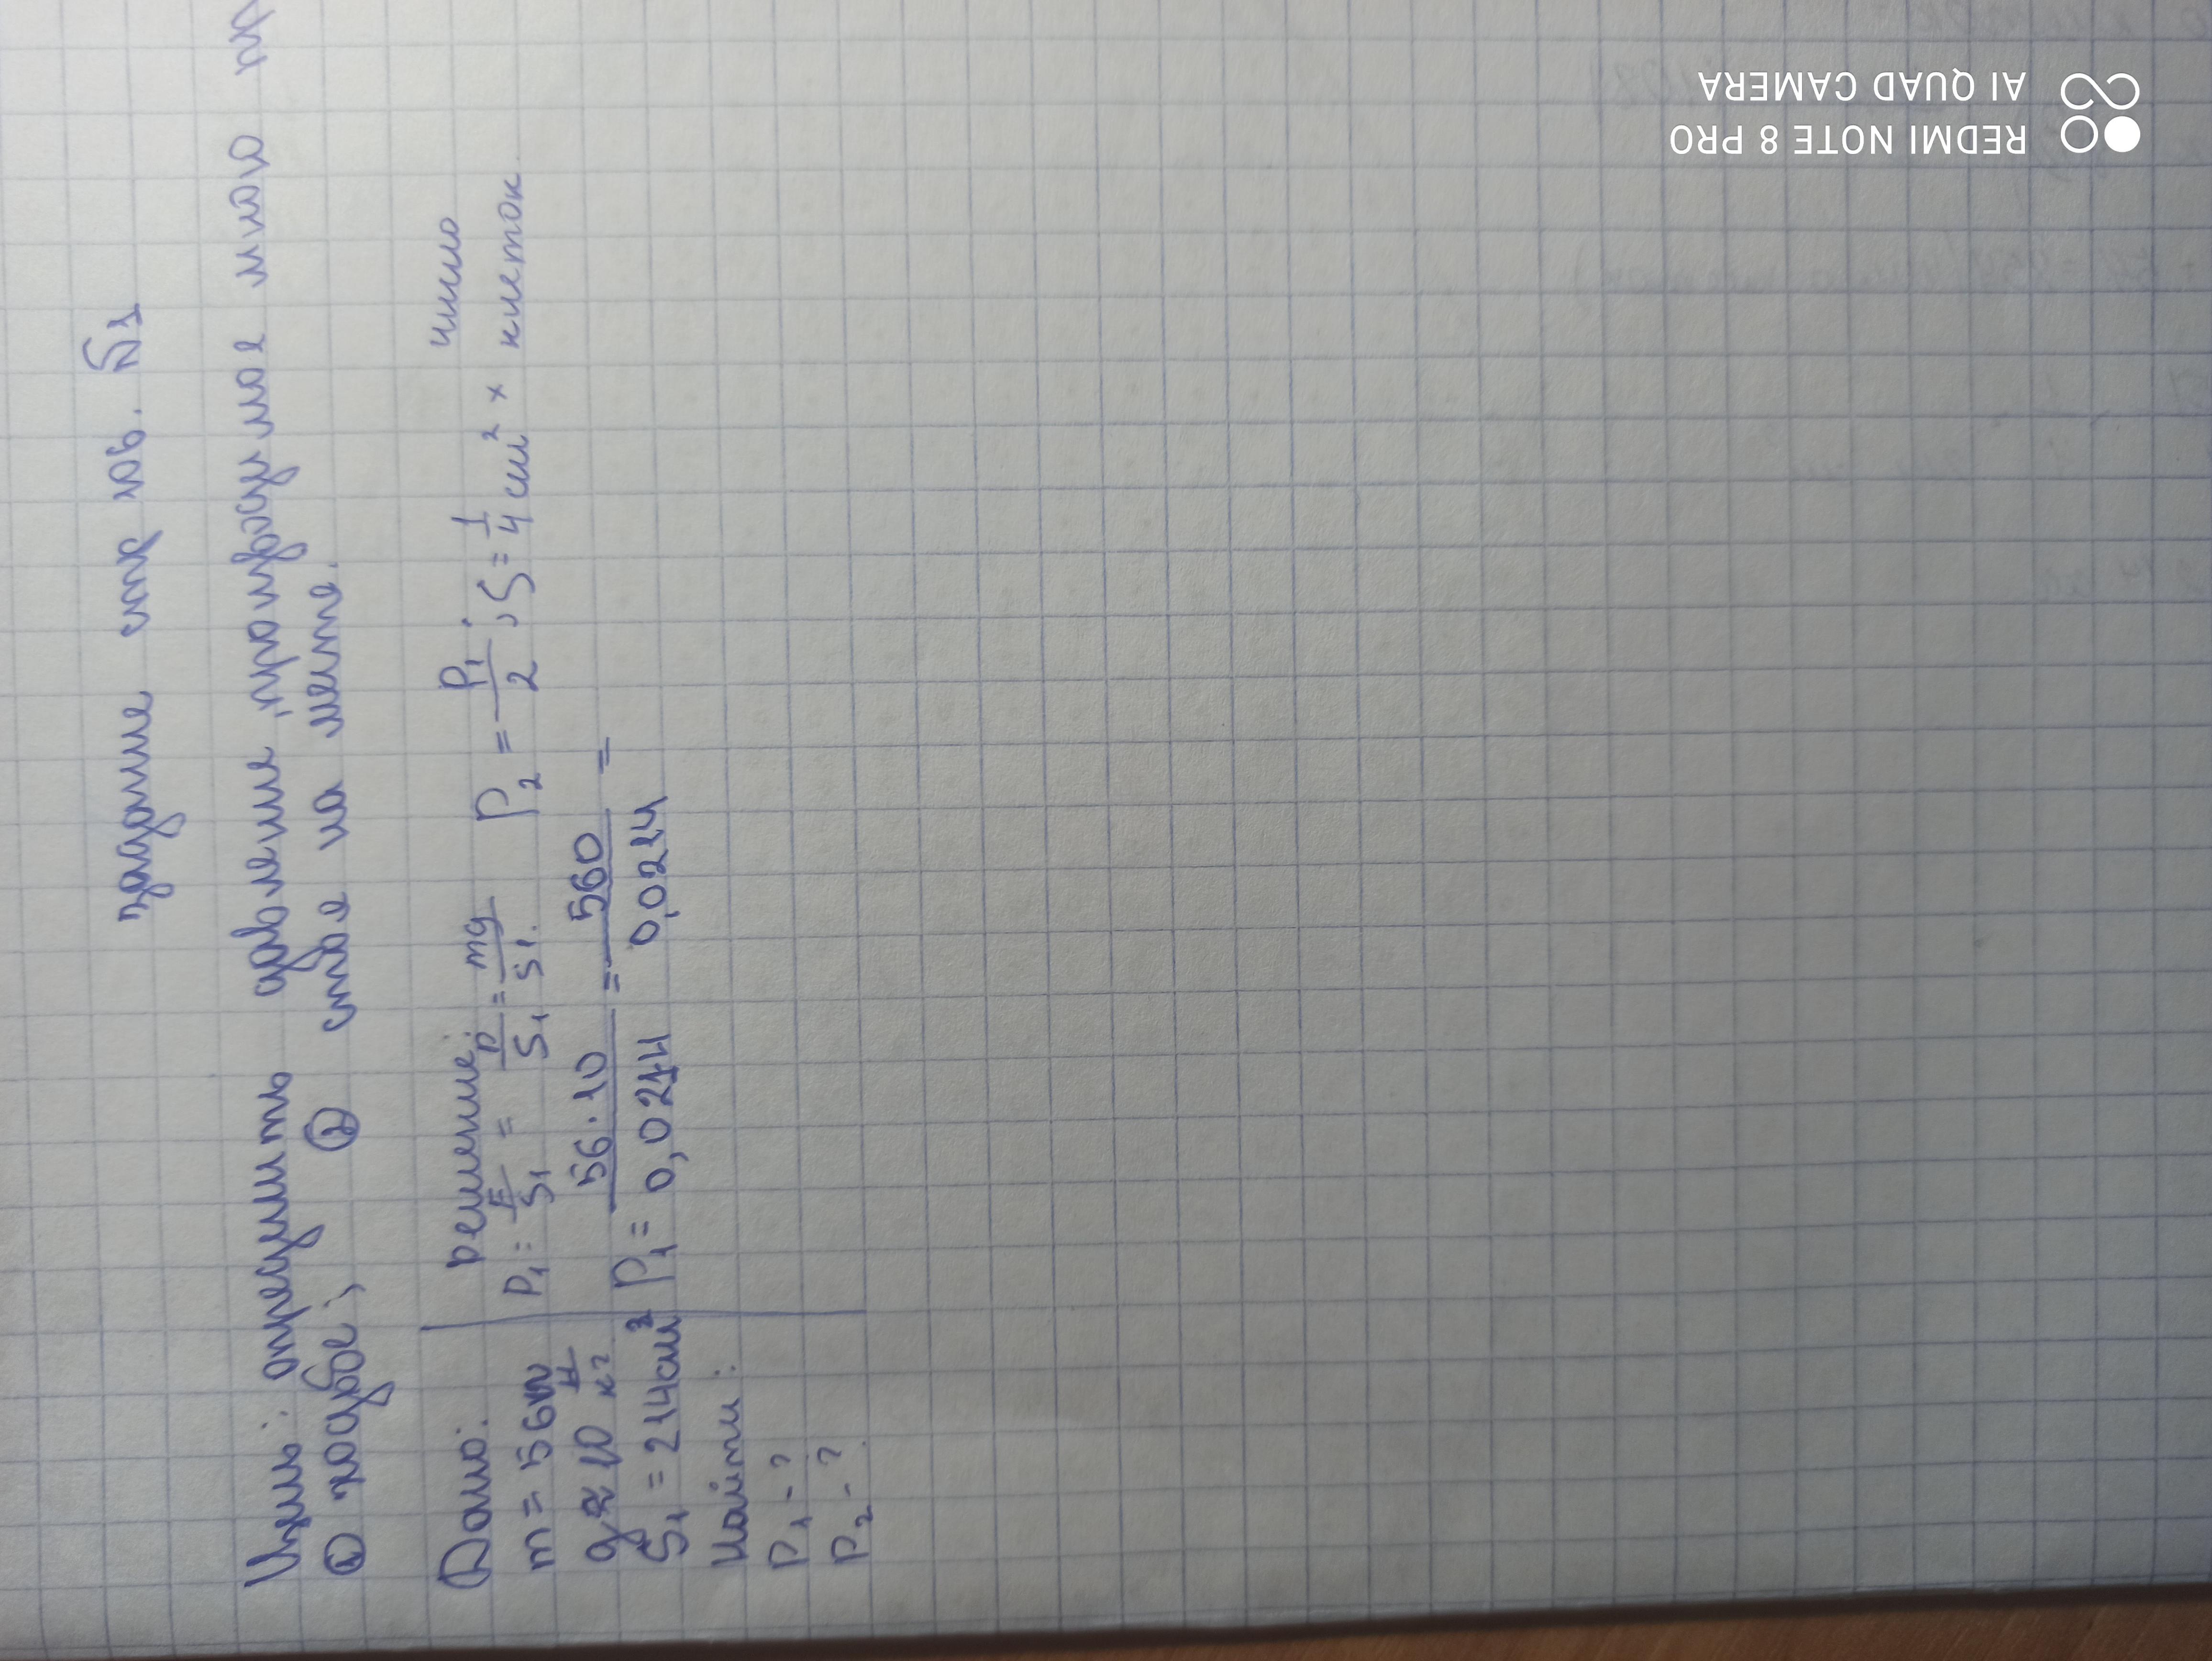 задание стр 109. §1
Цель: определить давление, производимое мною пр
① ходьбе; ② стоя на месте.
Дано:
m = 56кг
g ≈ 10 Н/кг
S₁ = 214см²
Найти:
P₁ - ?
P₂ - ?
решение:
P₁ = F/S₁ = P/S₁ = mg/S₁. P₂ = P₁/2; S = 1/4 см² × число клеток
P₁ = 56·10/0,0214 = 560/0,0214 =
REDMI NOTE 8 PRO
AI QUAD CAMERA